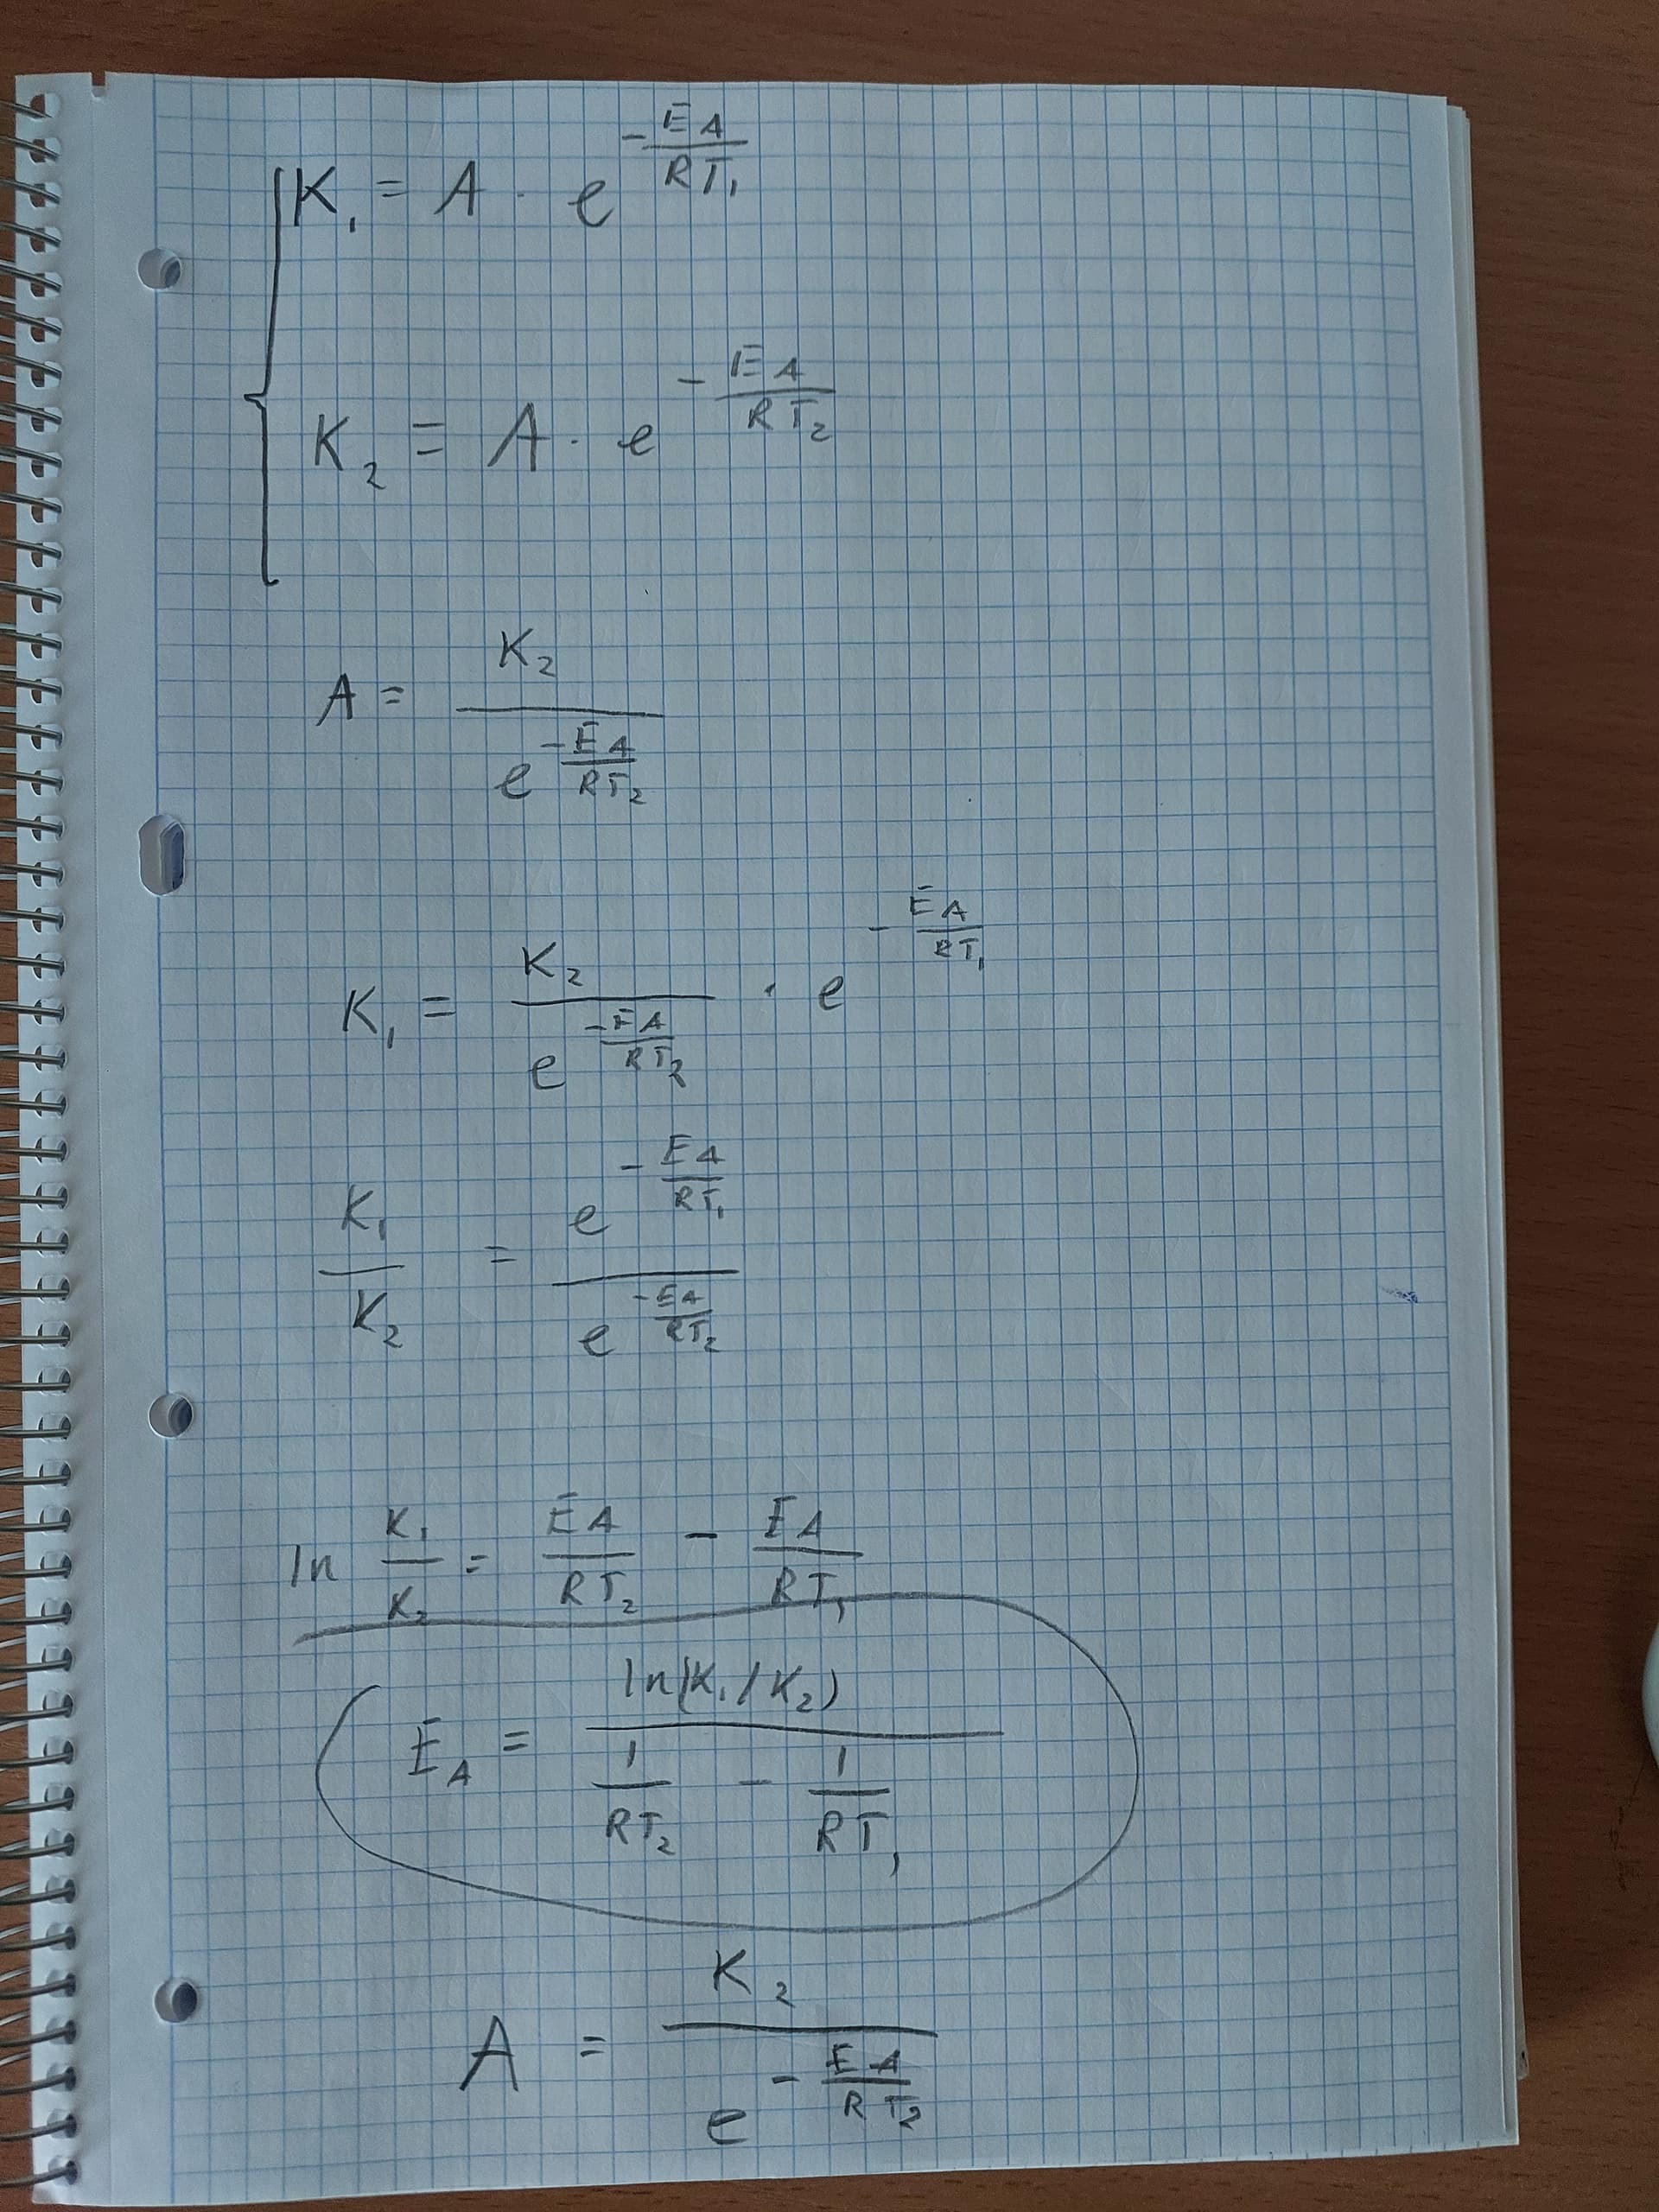 K₁ = A · e^(-E_A/RT₁)
K₂ = A · e^(-E_A/RT₂)
A = K₂ / e^(-E_A/RT₂)
K₁ = K₂ / e^(-E_A/RT₂) · e^(-E_A/RT₁)
K₁/K₂ = e^(-E_A/RT₁) / e^(-E_A/RT₂)
ln K₁/K₂ = E_A/RT₂ - E_A/RT₁
E_A = ln(K₁/K₂) / (1/RT₂ - 1/RT₁)
A = K₂ / e^(-E_A/RT₂)